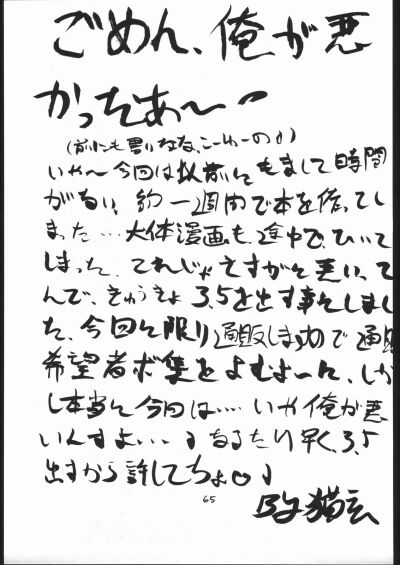 ごめん、俺が悪
かったあ〜
(前にも書いたな、こーゆーの♪)
いや〜今回は以前にもまして時間
がない、約一週間で本を作ってし
まった…大体漫画も途中で、ひいて
しまった、それじゃさすがに悪い、て
んで、きゅうきょ3.5を出す事にしまし
た、今回に限り通販しますので通販
希望者ボ集をよむよーに、しか
し本当に今回は……いや俺が悪
いんすよ…♪なるたけ早く3.5
出すから許してちょ♡♪
65
By 猫玄